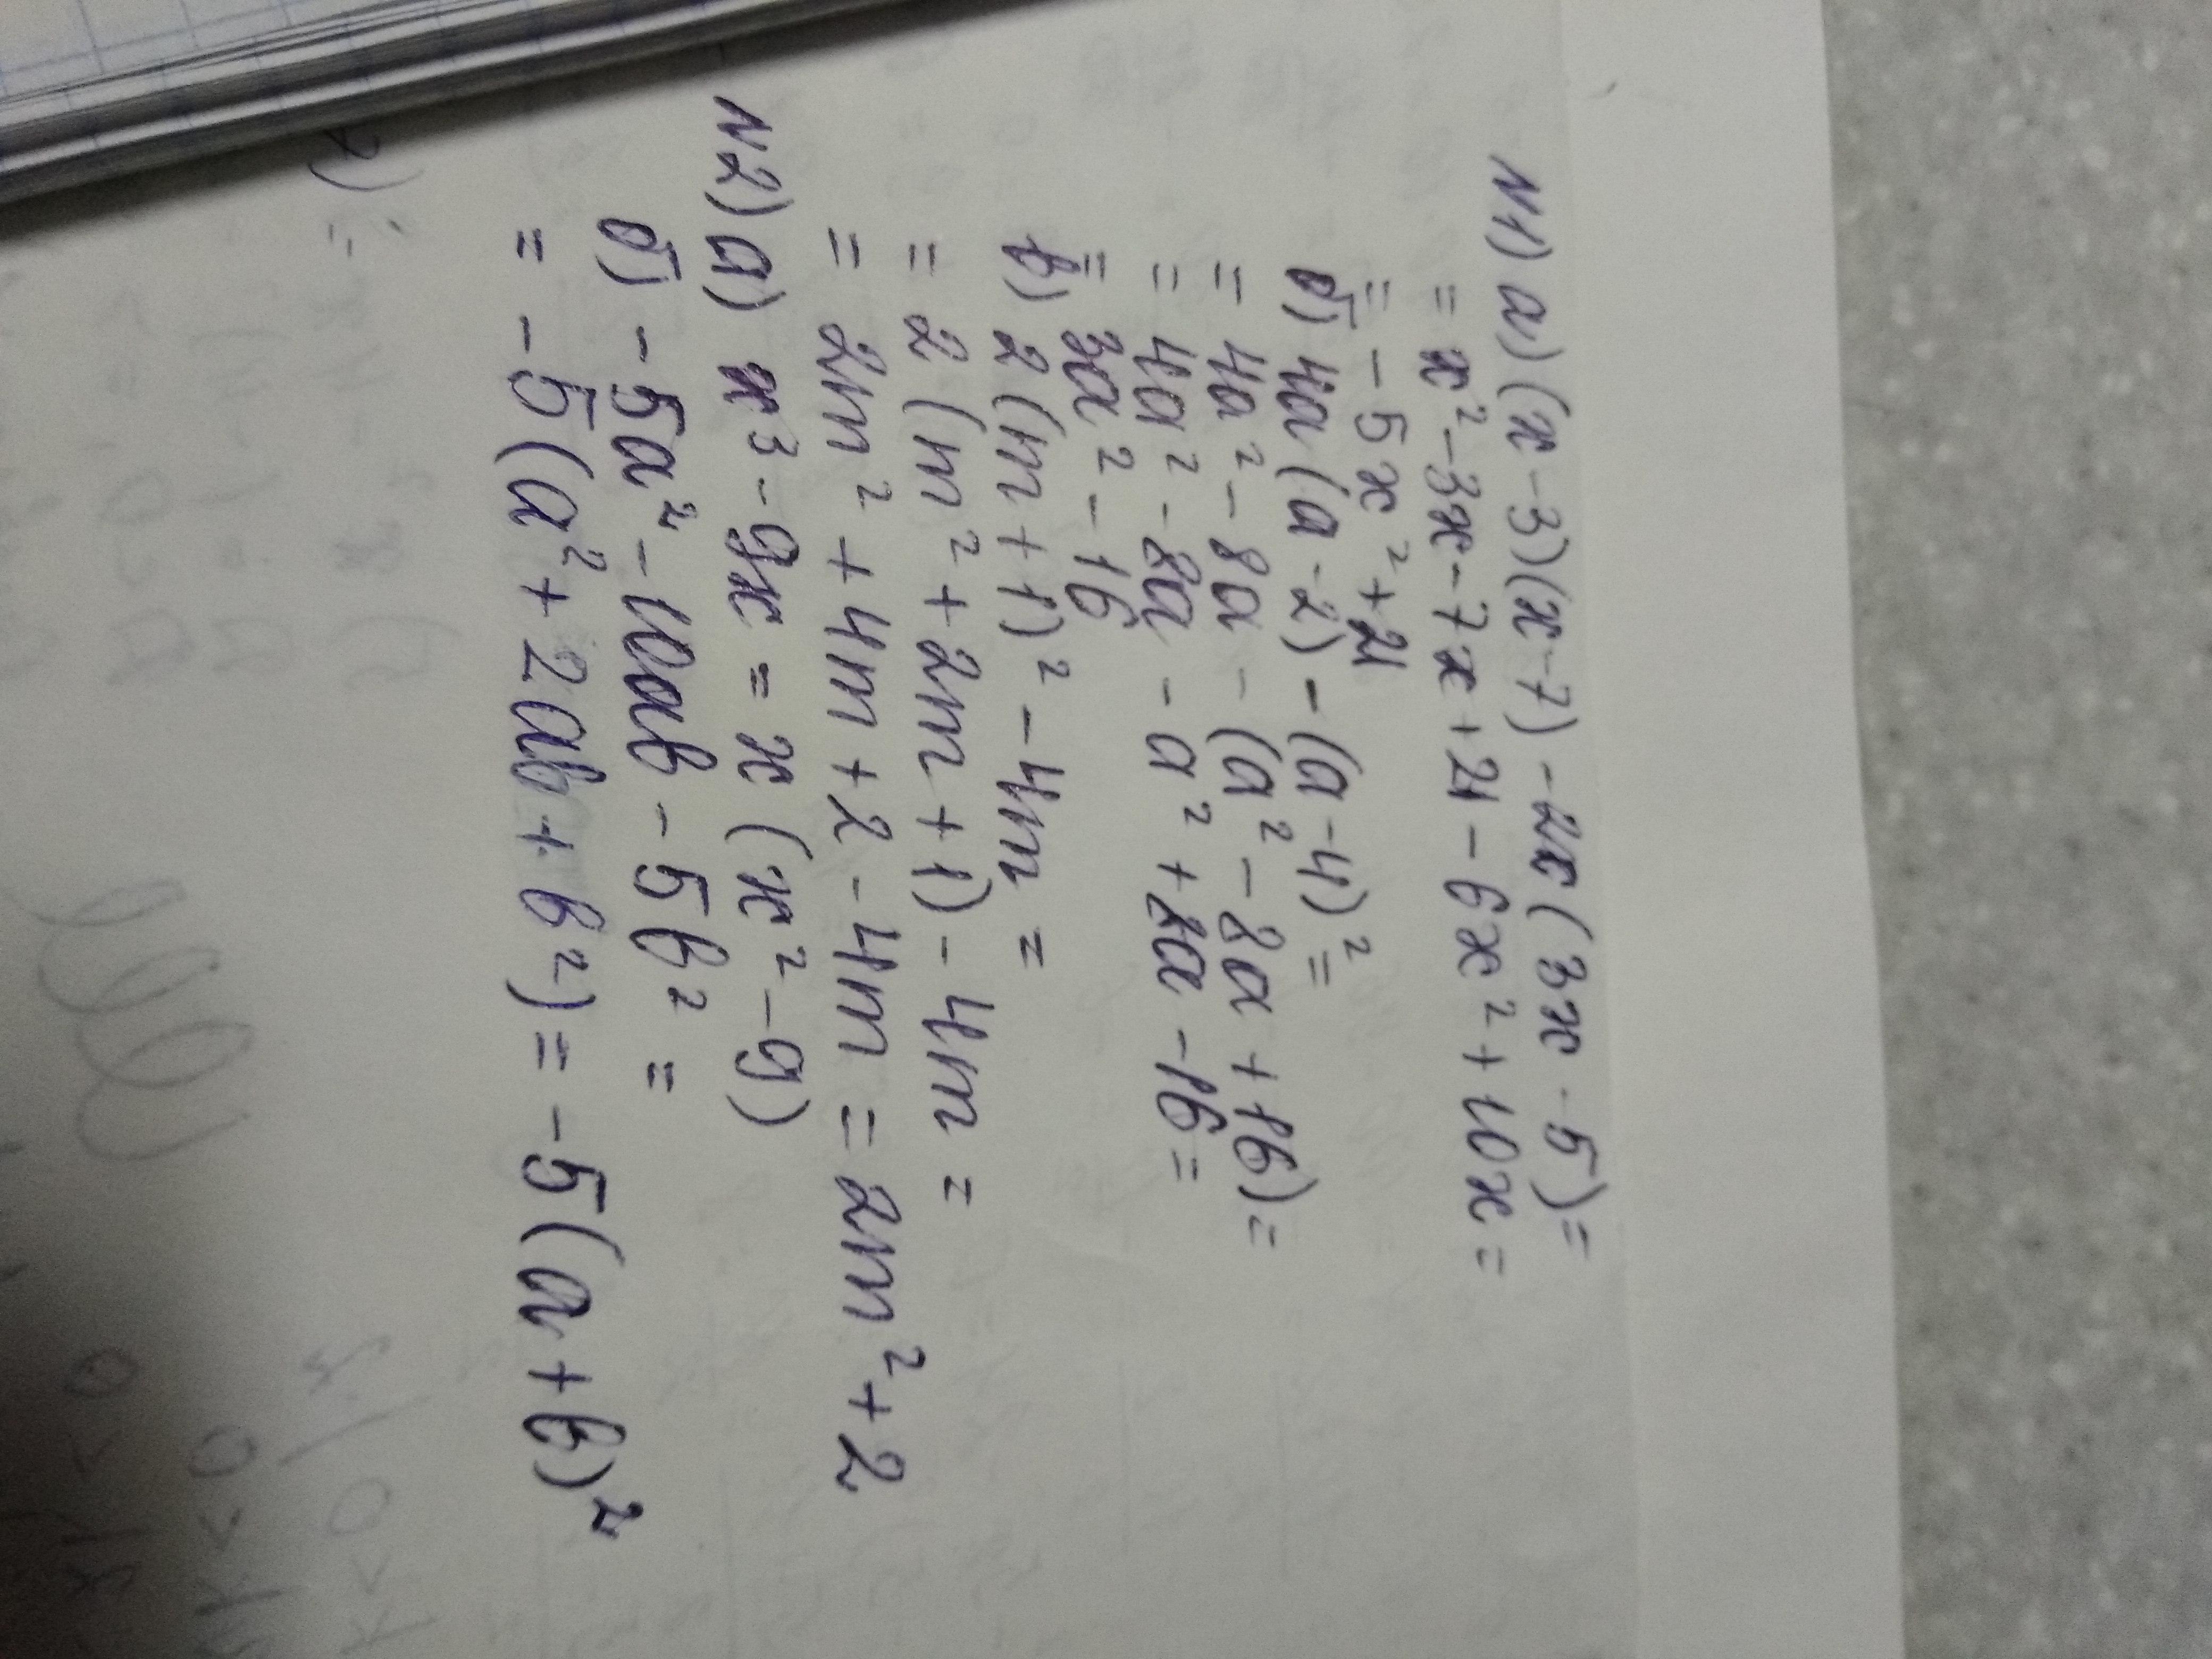 N1) a) (x-3)(x-7)-2x(3x-5)=
= x²-3x-7x+21-6x²+10x=
= -5x²+21
б) 4a(a-2)-(a-4)²=
= 4a²-8a-(a²-8a+16)=
= 4a²-8a-a²+8a-16=
= 3a²-16
в) 2(m+1)²-4m=
= 2(m²+2m+1)-4m=
= 2m²+4m+2-4m=2m²+2
N2) a) x³-9x=x(x²-9)
б) -5a²-10ab-5b²=
= -5(a²+2ab+b²)=-5(a+b)²